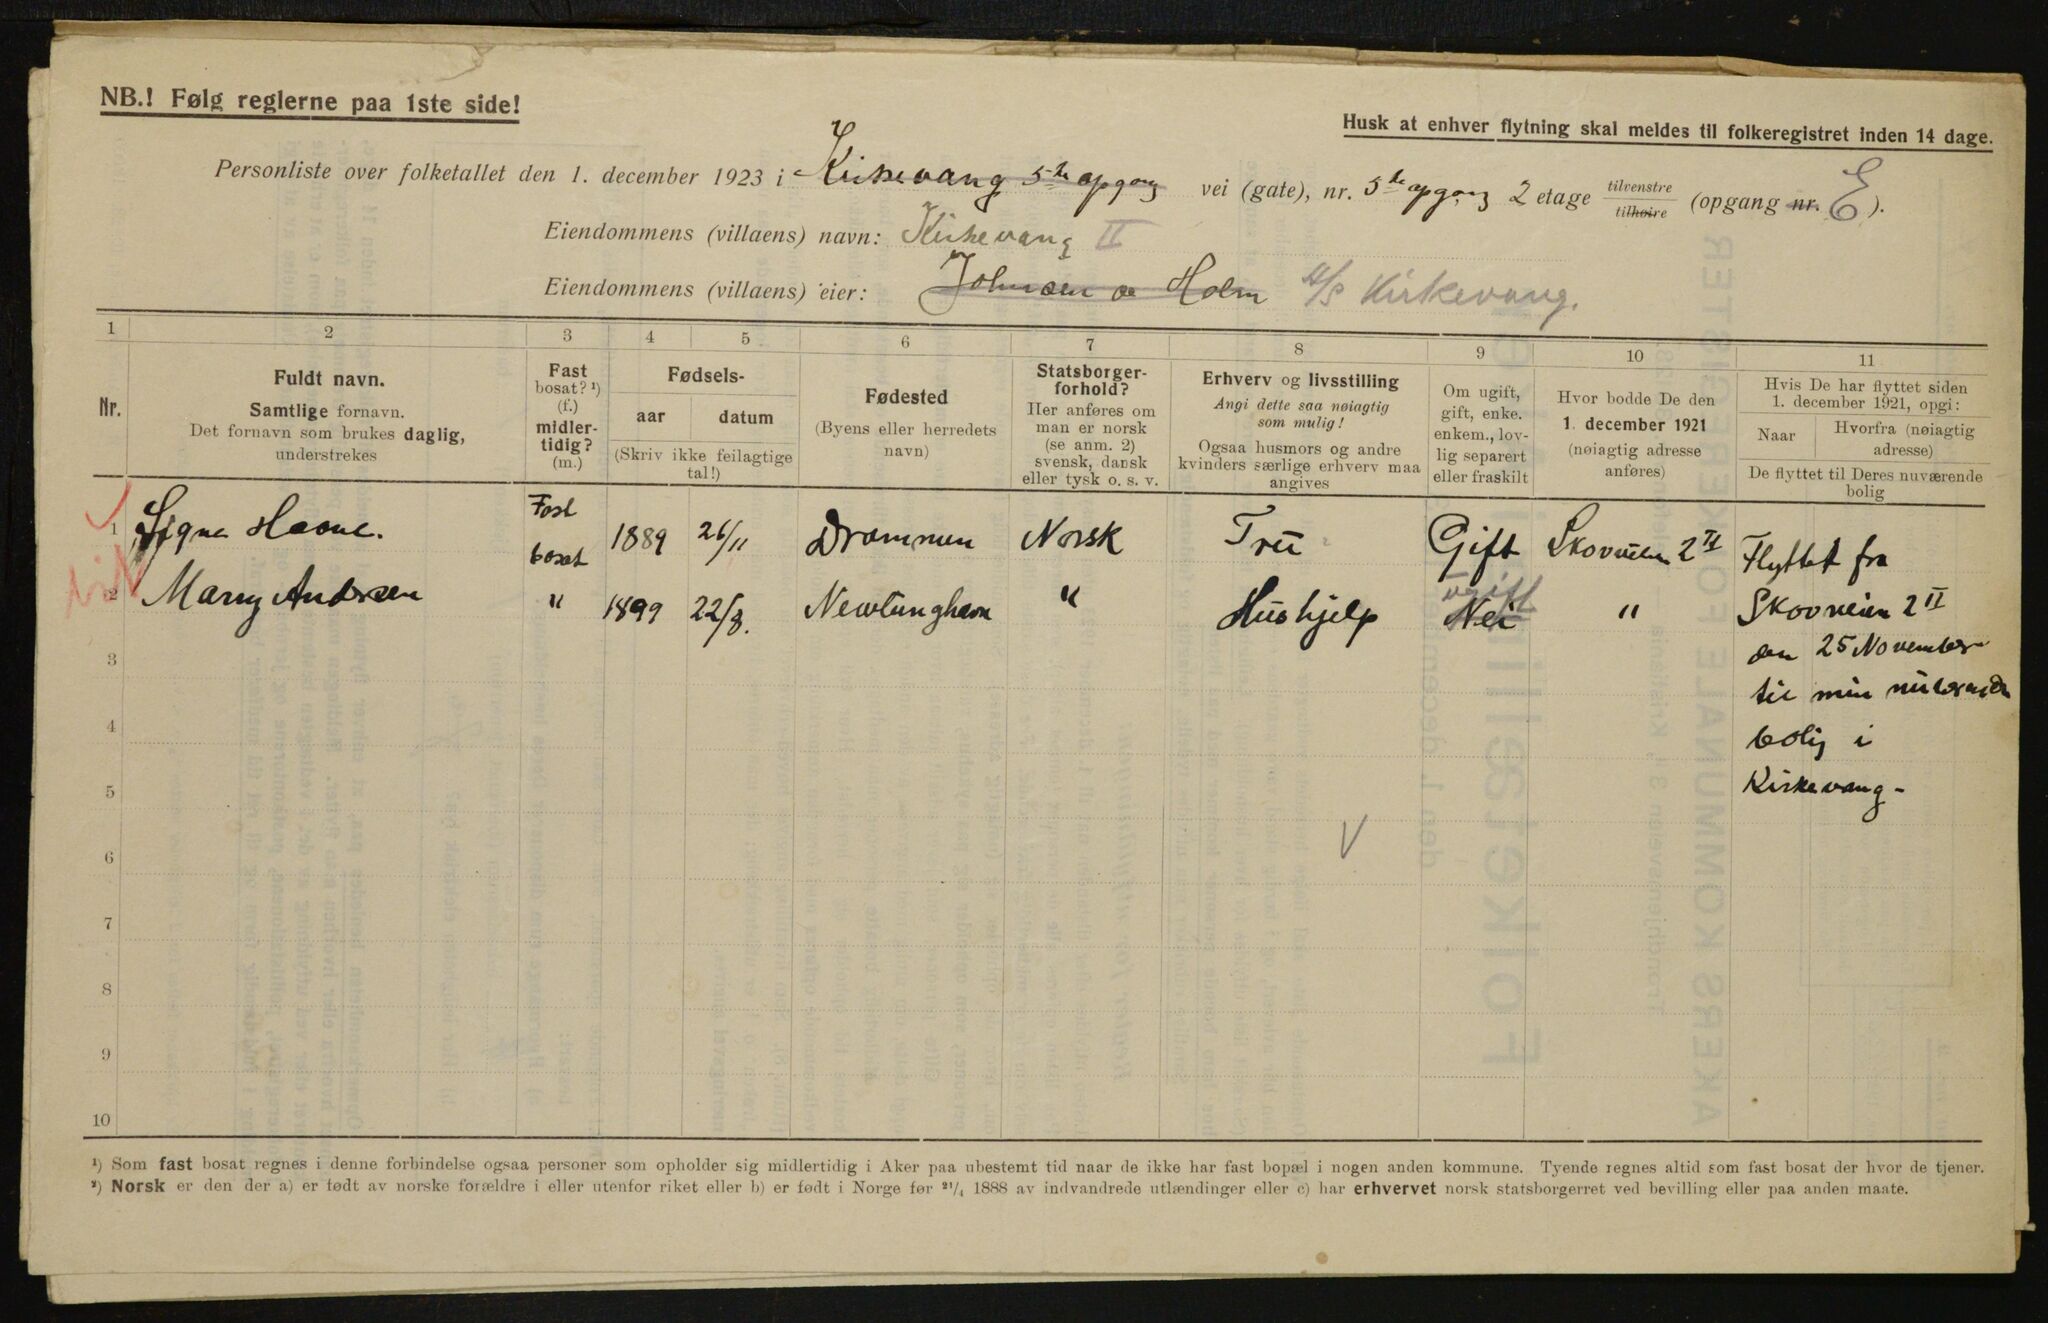 NB.! Følg reglerne paa 1ste side!
Husk at enhver flytning skal meldes til folkeregistret inden 14 dage.
Personliste over folketallet den 1. december 1923 i Kirkevang 5te opgang vei (gate), nr. 5te opgang 2 etage tilvenstre tilhøire (opgang nr. E).
Eiendommens (villaens) navn: Kirkevang II
Eiendommens (villaens) eier: Johnsen og Holm A/S Kirkevang.
1 2 3 4 5 6 7 8 9 10 11
Nr.
Fuldt navn.
Samtlige fornavn.
Det fornavn som brukes daglig,
understrekes
Fast
bosat? ¹)
(f.)
midler-
tidig?
(m.)
Fødsels-
aar datum
(Skriv ikke feilagtige
tal!)
Fødested
(Byens eller herredets
navn)
Statsborger-
forhold?
Her anføres om
man er norsk
(se anm. 2)
svensk, dansk
eller tysk o. s. v.
Erhverv og livsstilling
Angi dette saa nøiagtig
som mulig!
Ogsaa husmors og andre
kvinders særlige erhverv maa
angives
Om ugift,
gift, enke.
enkem., lov-
lig separert
eller fraskilt
Hvor bodde De den
1. december 1921
(nøiagtig adresse
anføres)
Hvis De har flyttet siden
1. december 1921, opgi:
Naar Hvorfra (nøiagtig
adresse)
De flyttet til Deres nuværende
bolig
1 Signe Fast bosat 1889 26/11 Drammen Norsk Frü Gift Skovveien 2 II Flyttet fra
2 Marry Andersen " 1899 22/8. " Hushjelp Nei ugift " Skovveien 2 II
3 den 25 November
til min nuværende
4 bolig i
5 Kirkevang -
6 V
7
8
9
10
¹) Som fast bosat regnes i denne forbindelse ogsaa personer som opholder sig midlertidig i Aker paa ubestemt tid naar de ikke har fast bopæl i nogen anden kommune. Tyende regnes altid som fast bosat der hvor de tjener.
²) Norsk er den der a) er født av norske forældre i eller utenfor riket eller b) er født i Norge før ²¹/₄ 1888 av indvandrede utlændinger eller c) har erhvervet norsk statsborgerret ved bevilling eller paa anden maate.